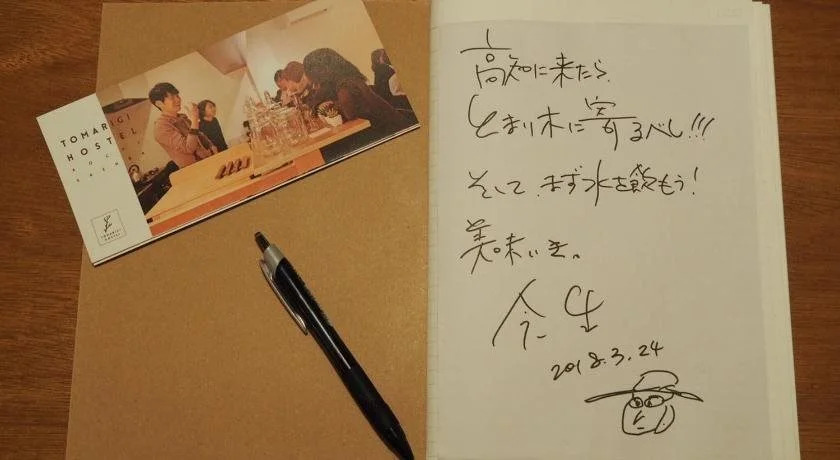 TOMARIGI
HOSTEL
KOCHI
高知に来たら、
とまり木に寄るべし!!!
そして、まず水を飲もう!
美味いき。
2018.3.24